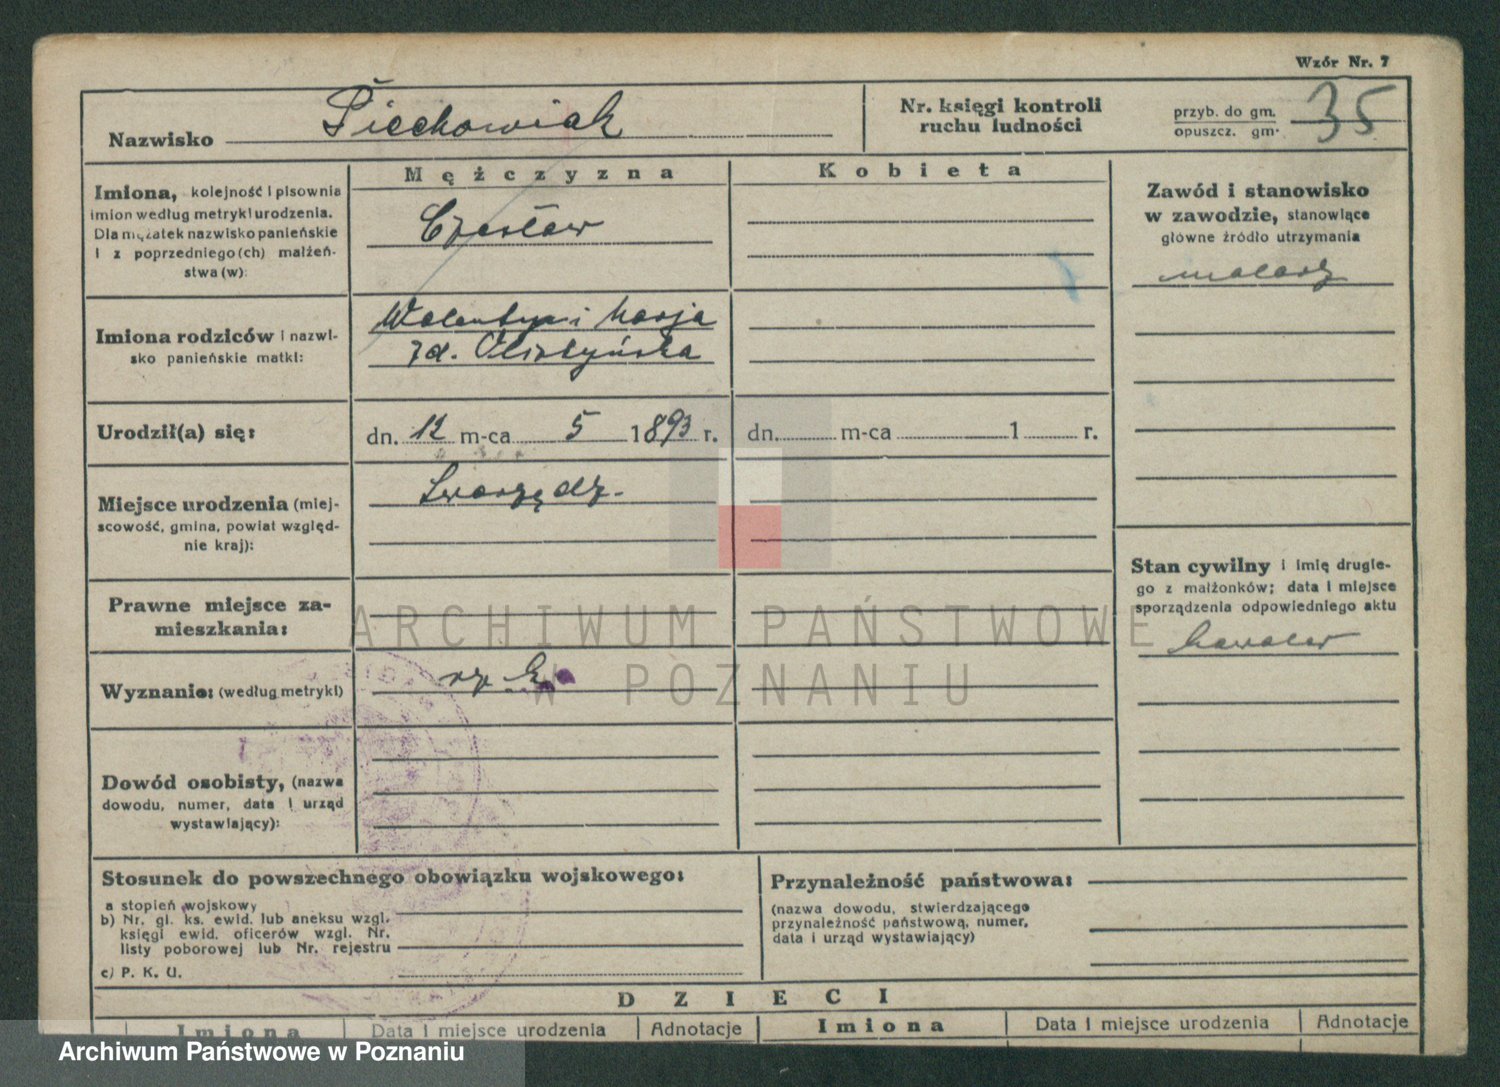 Wzór Nr. 7
Nazwisko Piechowiak
Nr. księgi kontroli
ruchu ludności
przyb. do gm.
opuszcz. gm.
35
Imiona, kolejność i pisownia
imion według metryki urodzenia.
Dla mężatek nazwisko panieńskie
i z poprzedniego(ch) małżeń-
stwa(w):
Mężczyzna
Czesław
Kobieta
Zawód i stanowisko
w zawodzie, stanowiące
główne źródło utrzymania
malarz
Imiona rodziców i nazwi-
sko panieńskie matki:
Walentyn i Marja
zd.
Urodził(a) się:
dn. 12 m-ca 5 1893 r.
dn. m-ca 1 r.
Miejsce urodzenia (miej-
scowość, gmina, powiat względ-
nie kraj):
Swarzędz.
Stan cywilny i imię drugie-
go z małżonków; data i miejsce
sporządzenia odpowiedniego aktu
kawaler
Prawne miejsce za-
mieszkania:
Wyznanie: (według metryki)
rz. k.
Dowód osobisty, (nazwa
dowodu, numer, data i urząd
wystawiający):
Stosunek do powszechnego obowiązku wojskowego:
a stopień wojskowy
b) Nr. gł. ks. ewid. lub aneksu wzgl.
księgi ewid. oficerów wzgl. Nr.
listy poborowej lub Nr. rejestru
c) P. K. U.
Przynależność państwowa:
(nazwa dowodu, stwierdzającego
przynależność państwową, numer,
data i urząd wystawiający)
DZIECI
Imiona Data i miejsce urodzenia Adnotacje Imiona Data i miejsce urodzenia Adnotacje
ARCHIWUM PAŃSTWOWE
W POZNANIU
Archiwum Państwowe w Poznaniu